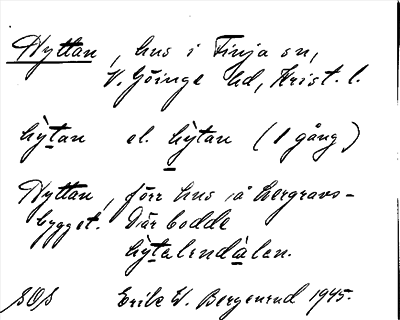 Hyttan, hus i Finja sn,
V. Göinge hd, Krist. l.
hỳtan el. hỳtan (1 gång)
Hyttan, förr hus på Lergravs-
bygget. Där bodde
hỳtalendàlen.
SOS Erik W. Bergenrud 1945.